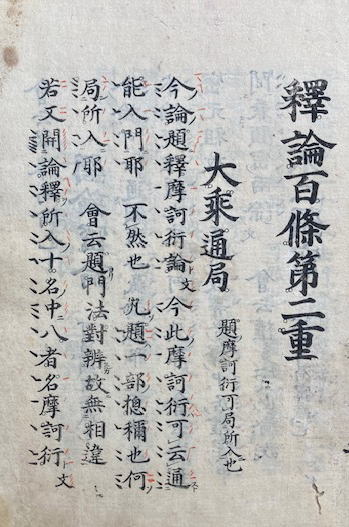 釋論百條第二重
大乘通局
題摩訶衍可局所入也
今論題釋摩訶衍論文今此摩訶衍可云通
能入門耶 不然也 凡題一部摠稱也何
局所入耶 會云題門法對辨故無相違
若又開論釋所入十名中八者名摩訶衍文